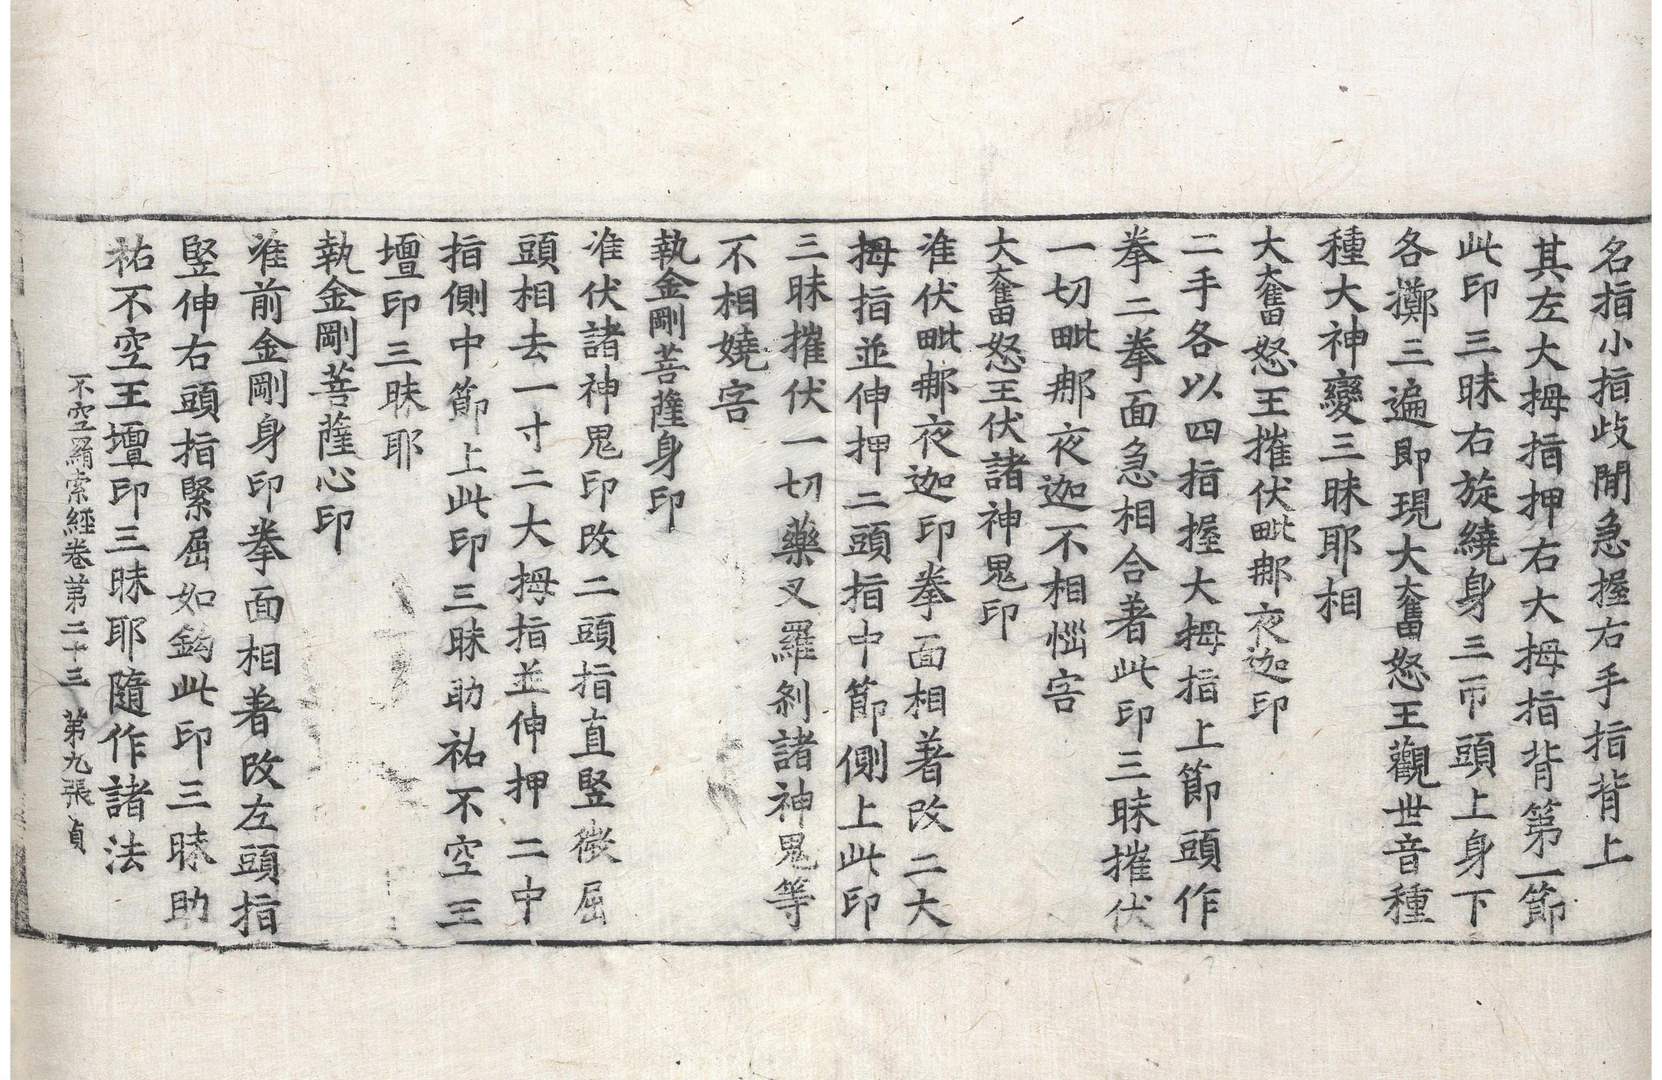 名指小指歧間急握右手指背上
其左大拇指押右大拇指背第一節
此印三昧右旋繞身三帀頭上身下
各擲三遍即現大奮怒王觀世音種
種大神變三昧耶相
大奮怒王摧伏毗那夜迦印
二手各以四指握大拇指上節頭作
拳二拳面急相合著此印三昧摧伏
一切毗那夜迦不相惱害
大奮怒王伏諸神鬼印
准伏毗那夜迦印拳面相著改二大
拇指並伸押二頭指中節側上此印
三昧摧伏一切藥叉羅剎諸神鬼等
不相嬈害
執金剛菩薩身印
准伏諸神鬼印改二頭指直竪微屈
頭相去一寸二大拇指並伸押二中
指側中節上此印三昧助祐不空王
壇印三昧耶
執金剛菩薩心印
准前金剛身印拳面相著改左頭指
竪伸右頭指緊屈如鈎此印三昧助
祐不空王壇印三昧耶隨作諸法
不空羂索經卷第二十三 第九張 貞